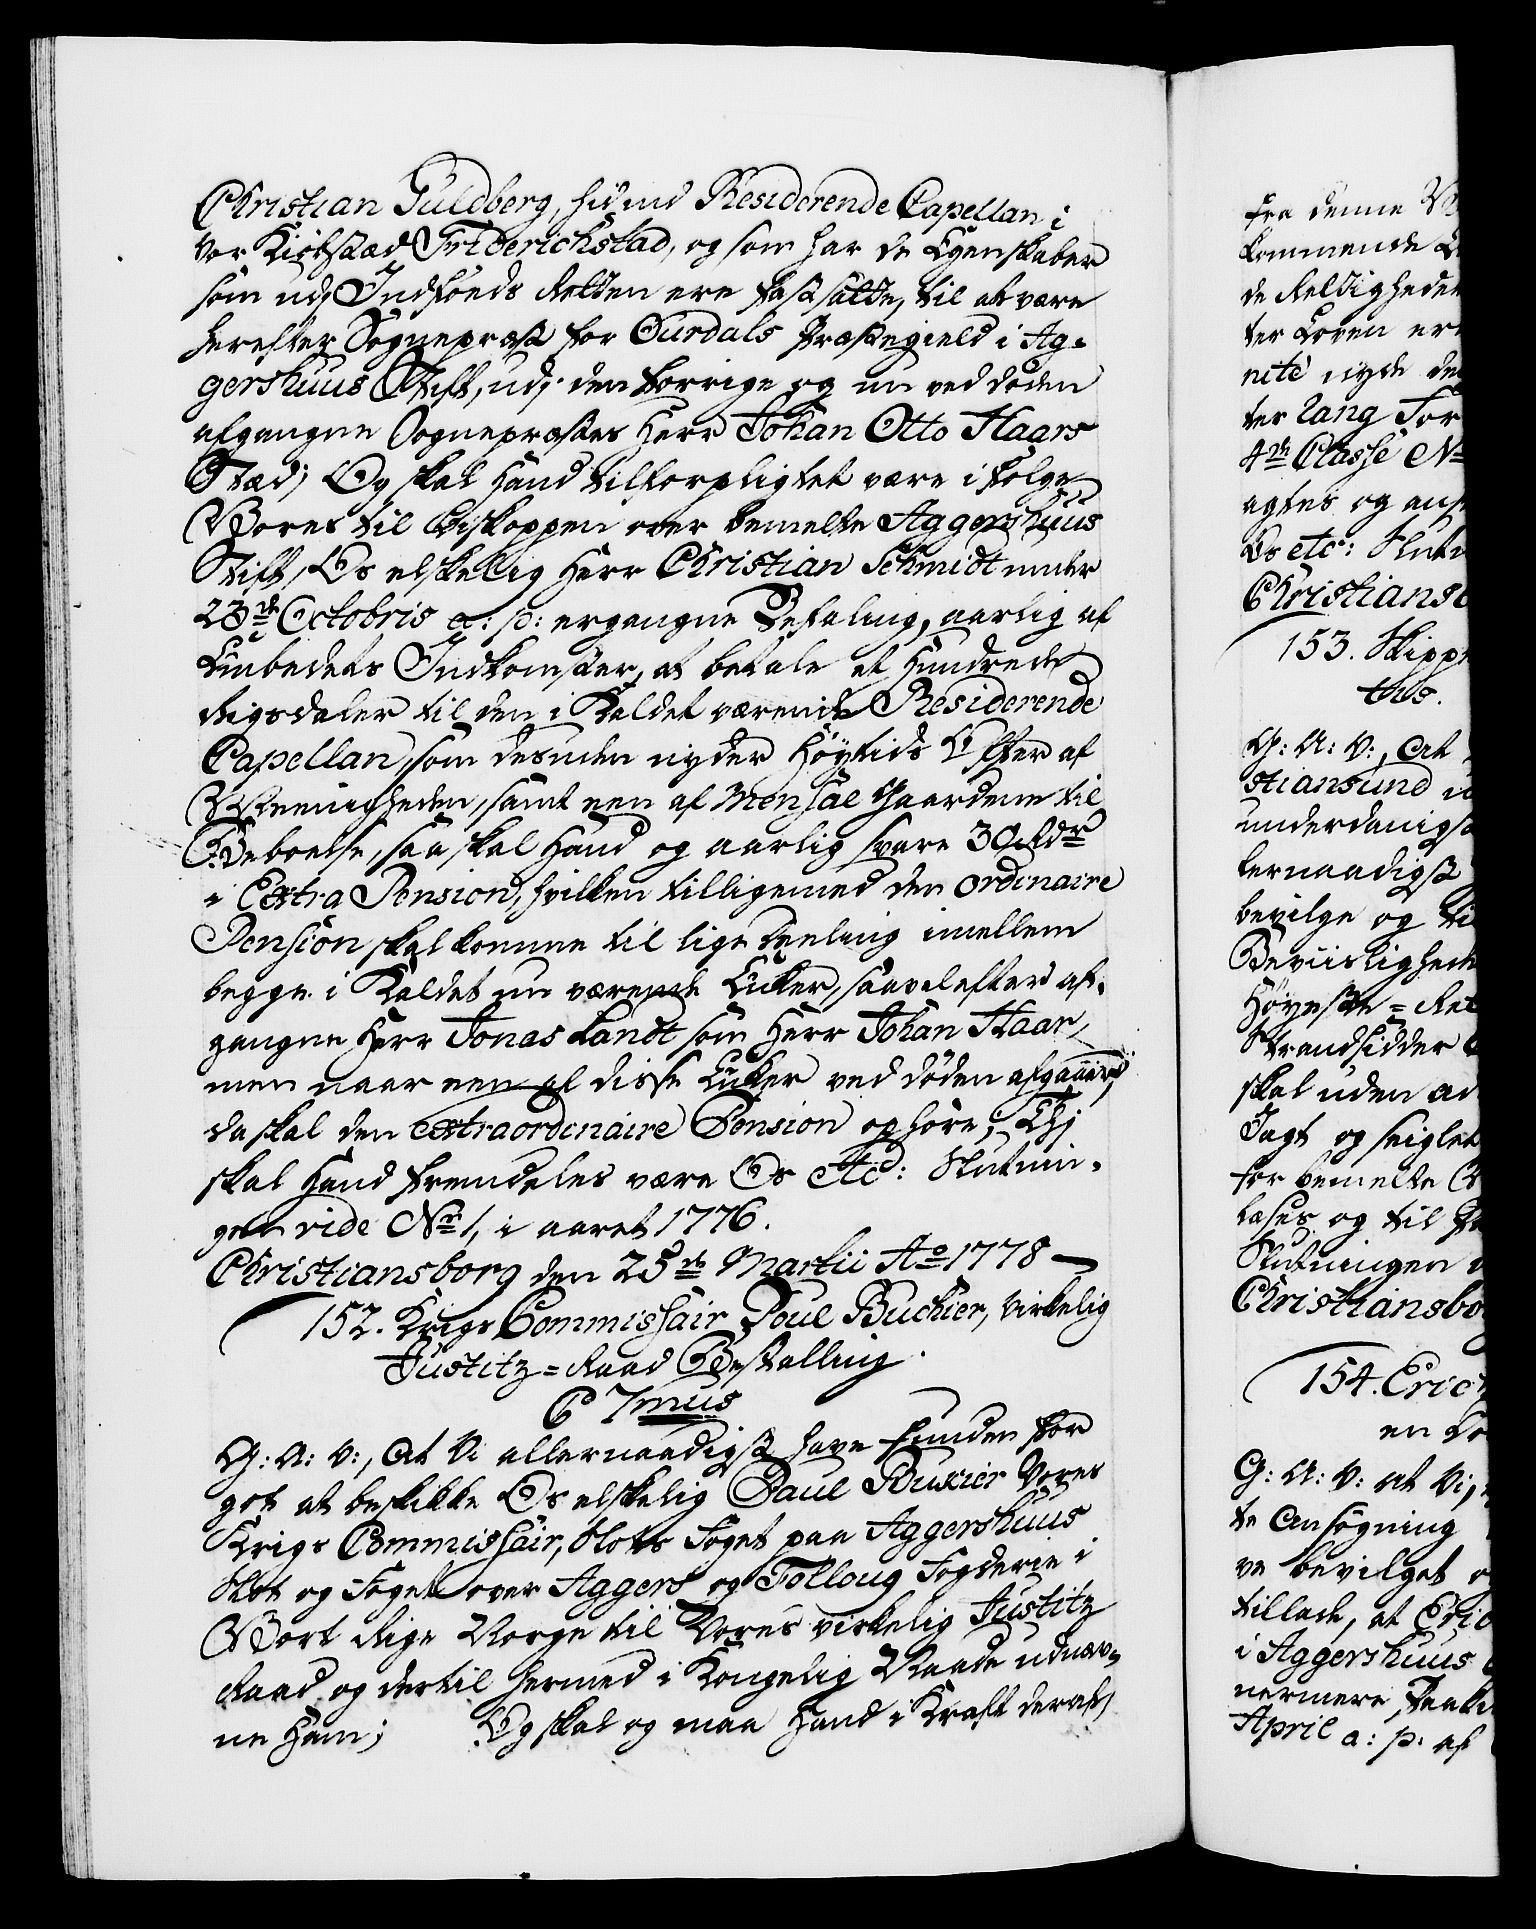 Christian Guldberg, hidind Residerende Capellan i
Vor Kiøbstæd Friderichstad, og som har de Egenskaber
som udj Indføeds Retten ere fastsatte, til at være
herefter Sognepræst for Ourdals Præstegield i Ag-
gershuus Stift, udj den forrige og nu ved døden
afgangne Sognepræstes Herr Johan Otto Haars
Stæd; Og skal Hand tilforpligtet være i følge
Vores til Biskoppen over bemelte Aggershuus
Stift, Os elskelig Herr Christian Schmidt under
23de Octobris a: p: ergangne Befaling, aarlig af
Embedets Indkomster, at betale et Hundrede
Rigsdaler til den i Kaldet værende Residerende
Capellan, som desuden nyder Høytids Offer af
Meenigheden, samt een af Mensal Gaardene til
Beboelse, saa skal Hand og aarlig svare 30 Rdr
i Extra Pension, hvilken tilligemed den ordinaire
Pension skal komme til lige deeling imellem
begge i Kaldet nu værende Enker, saavel efter af-
gangne Herr Jonas Landt som Herr Johan Haar,
men naar een af disse Enker ved døden afgaaer,
da skal den extraordinaire Pension ophøre; Thj
skal Hand fremdeles være Os etc: Slutnin-
gen vide No 1, i aaret 1776.
Christiansborg den 25de Martii Ao 1778
152. Krigs Commissair Poul Buchier, virkelig
Justitz-Raad Bestalling.
C 7mus
G: A: V:, At Vi allernaadigst have funden for
got at beskikke Os elskelig Paul Buxier Vores
Krigs Commissair, Slots Foget paa Aggershuus
Slot og Foget over Aggers og Folloug Fogderie i
Vort Rige Norge til Vores virkelig Justitz
Raad og dertil hermed i Kongelig Naade udnæv-
ne Ham; Og skal og maa Hand i Kraft deraf
fra denne
kommende
de Rettigheder
ter Loven
nite nyde
ter lang For
4de Classe No
agtes og
Os etc: Slutn
Christiansb
153.
G: A: V:, At
stiansund
underdanigst
lernaadigst
bevilge og til
Beviislighed
Høyeste-Ret
Strandsidder
skal uden
Jagt og
for bemelte
og til
Slutningen
Christiansbo
154. Eric
en
G: A: V: at Vi,
te Ansøgning
ve bevilget
tillade, at Eric
i Aggershuus
nermere
April a: p: af